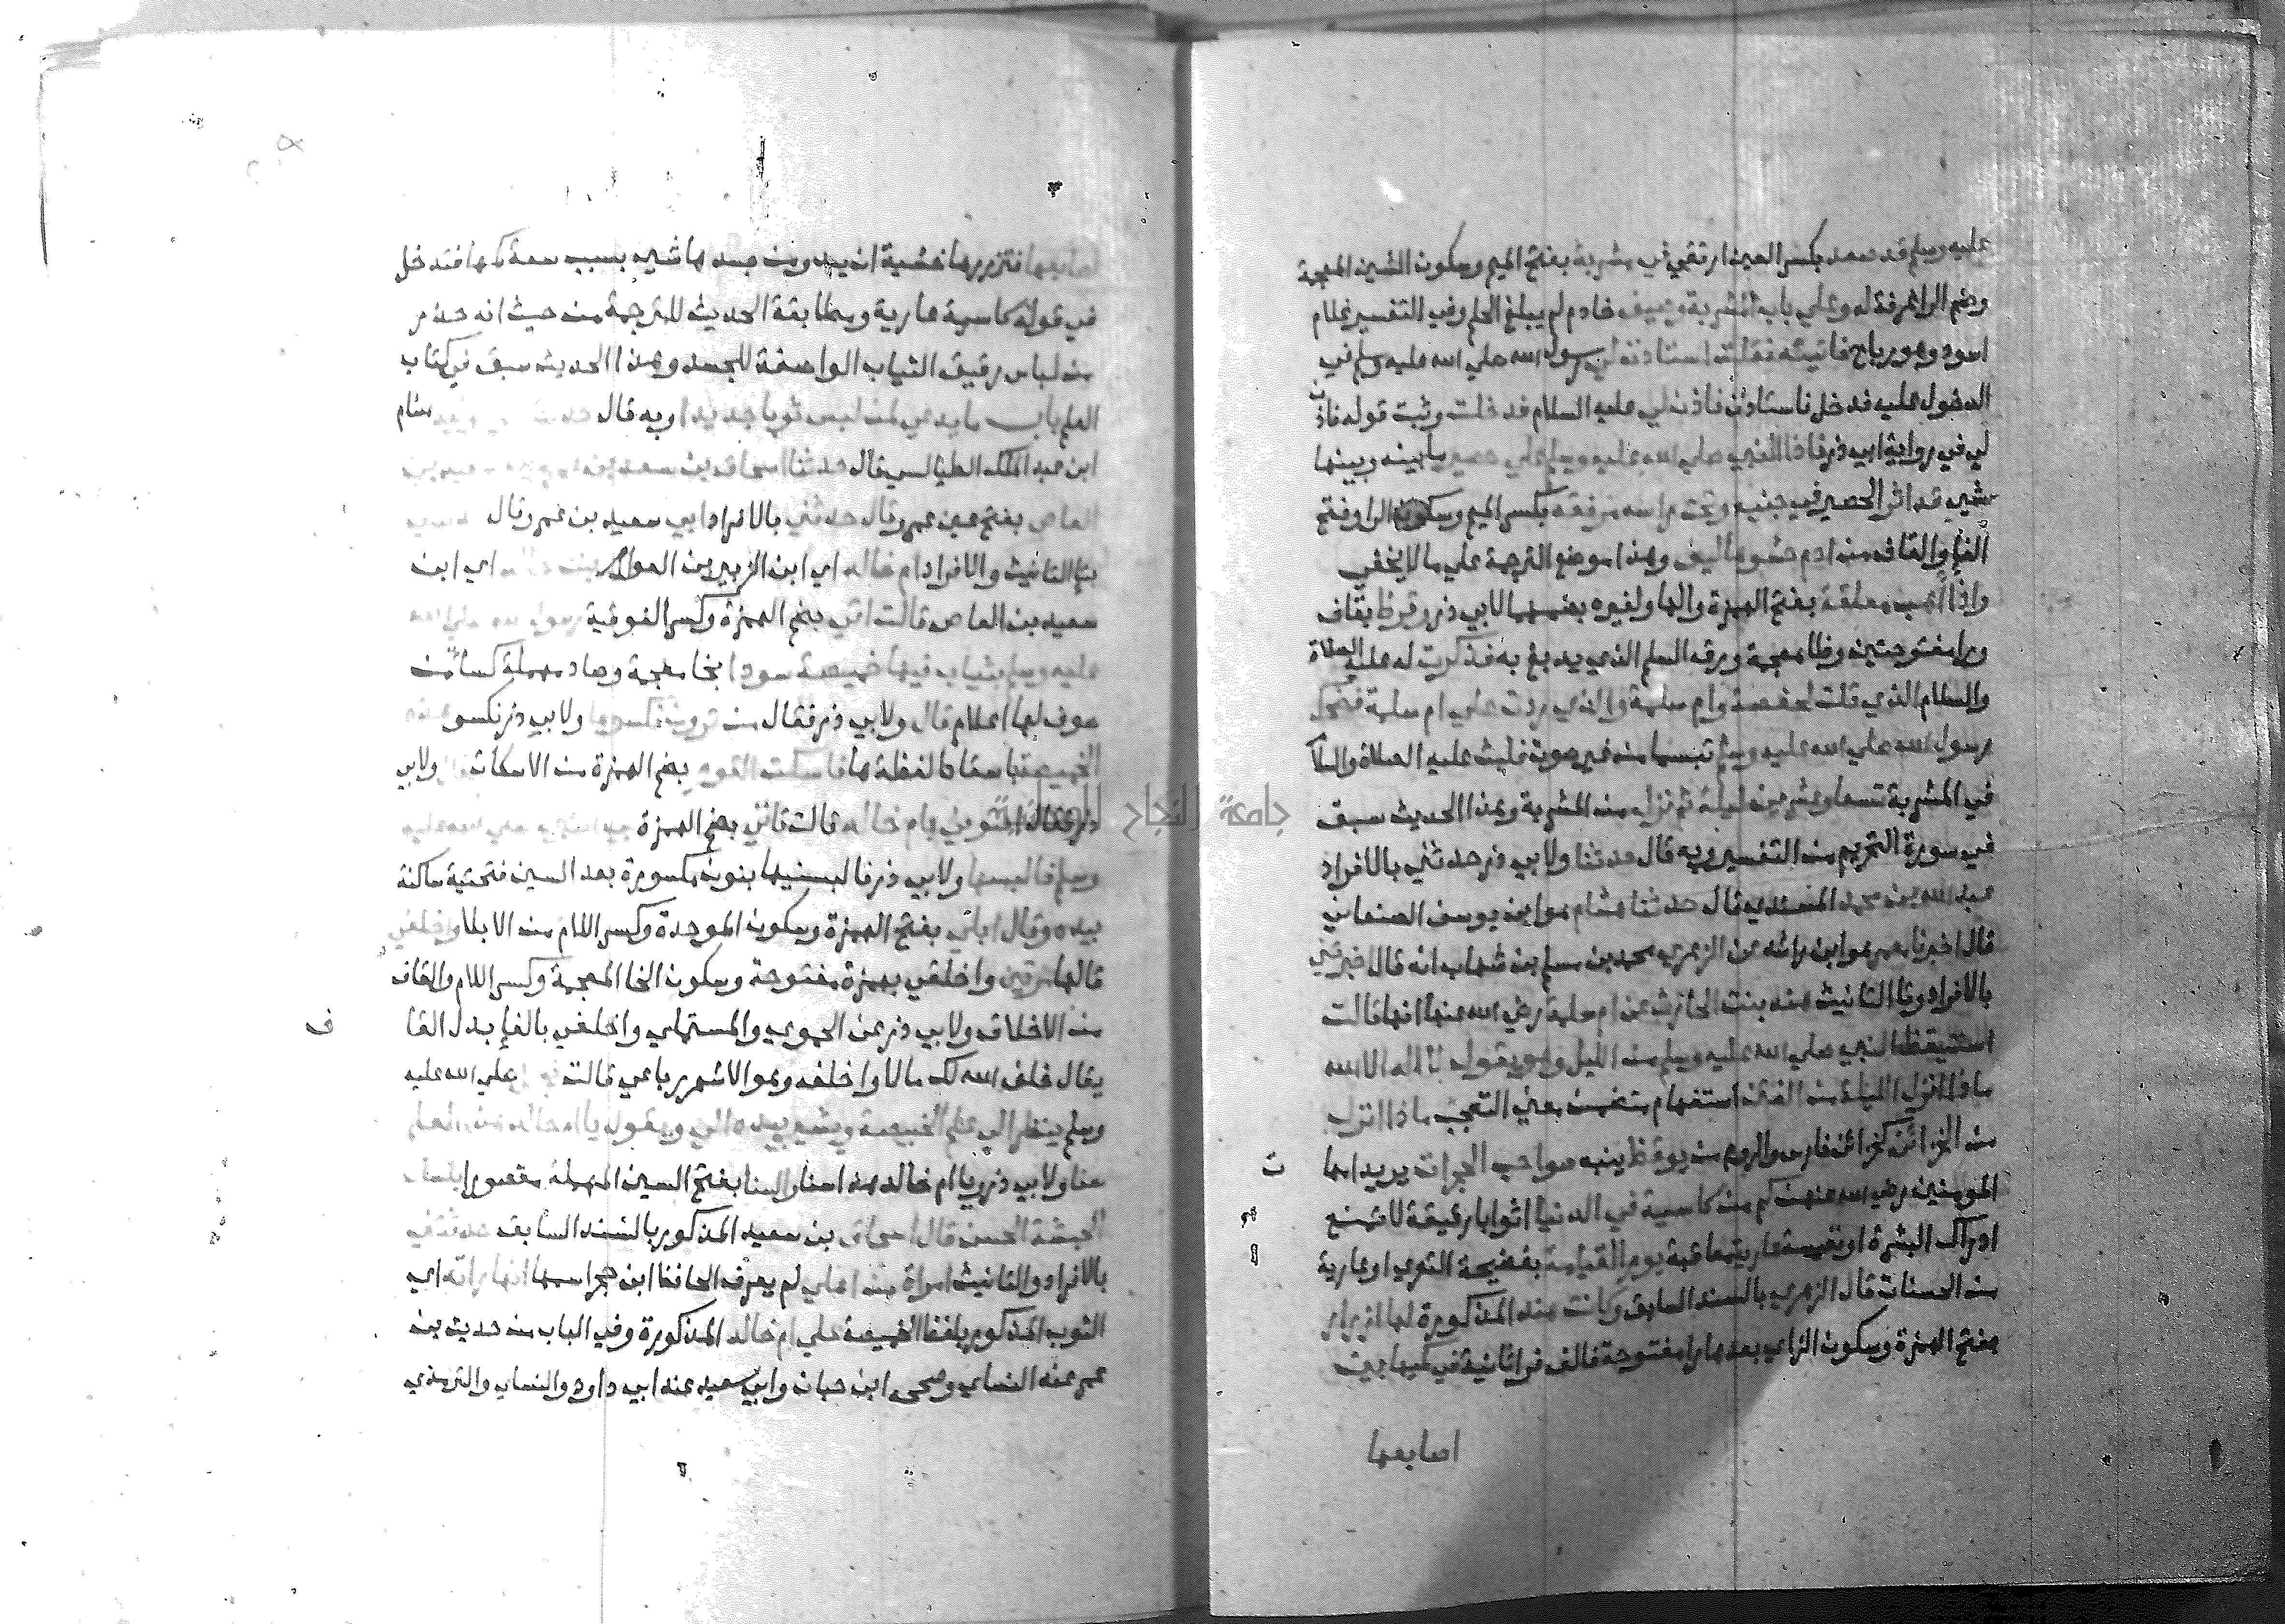 عليه وسلم قد صعد بكسر العين ارتقي في مشربة بفتح الميم وسكون الشين المعجمة
وضم الرا غرفة له وعلي باب المشربة وصيف خادم لم يبلغ الحلم وفي التفسير غلام
اسود وهو رباح فاتيته فقلت استاذن لي رسول الله صلي الله عليه وسلم في
الدخول عليه فدخل فاستاذن فاذن لي عليه السلام فدخلت وثبت قوله فاذن
لي في رواية ابي ذر فاذا النبي صلي الله عليه وسلم علي حصير ما بينه وبينها
شي قد اثر الحصير في جنبه وتحت راسه مرفقة بكسر الميم وسكون الرا وفتح
الفا والقاف من ادم حشوها ليف وهذا موضع الترجمة علي ما لا يخفي
واذا اهب معلقة بفتح الهمزة والها ولغيره بضمهما لابي ذر وقرظ بقاف
ورا مفتوحتين وظا معجمة ورق السلم الذي يدبغ به فذكرت له عليه الصلاة
والسلام الذي قلت لحفصة وام سلمة والذي ردت علي ام سلمة فضحك
رسول الله صلي الله عليه وسلم تبسما من غير صوت فلبث عليه الصلاة والسلا
في المشربة تسعا وعشرين ليلة ثم نزل من المشربة وهذا الحديث سبق
في سورة التحريم من التفسير وبه قال حدثنا ولابي ذر حدثني بالافراد
عبد الله بن محمد المسندي قال حدثنا هشام هو ابن يوسف الصنعاني
قال اخبرنا معمر هو ابن راشد عن الزهري محمد بن مسلم بن شهاب انه قال اخبرتني
بالافراد وتا التانيث هند بنت الحارث عن ام سلمة رضي الله عنها انها قالت
استيقظ النبي صلي الله عليه وسلم من الليل وهو يقول لا اله الا الله
ماذا انزل الليلة من الفتن استفهام متضمن معني التعجب ماذا انزل
من الخزائن كخزائن فارس والروم من يوقظ ينبه صواحب الحجرات يريد امها
ت
المومنين رضي الله عنهن كم من كاسية في الدنيا اثوابا رقيقة لا تمنع
ادراك البشرة او نفيسة عارية معاقبة يوم القيامة بفضيحة التعري او عارية
من الحسنات قال الزهري بالسند السابق وكانت هند المذكورة لها ازرار
بفتح الهمزة وسكون الزاي بعدها را مفتوحة فالف فرا ثانية في كميها بين
اصابعها
اصابعها فتزررها خشية ان يبدو من جسدها شي بسبب سعة كمها فتدخل
في قوله كاسية عارية ومطابقة الحديث للترجمة من حيث انه حذر
من لباس رقيق الثياب الواصفة للجسد وهذا الحديث سبق في كتاب
العلم باب ما يدعي لمن لبس ثوبا جديدا وبه قال هشام
ابن عبد الملك الطيالسي قال حدثنا اسحاق بن سعيد بن
العاص بفتح عين عمرو قال حدثني بالافراد ابي سعيد بن عمرو قال
بتا التانيث والافراد ام خالد اي ابن الزبير بن العوام بنت خالد اي ابن
سعيد بن العاص قالت اتي بضم الهمزة وكسر الفوقية رسول الله صلي الله
عليه وسلم بثياب فيها خميصة سودا بخا معجمة وصاد مهملة كسا من
صوف لها اعلام قال ولابي ذر فقال من ترون نكسوها ولابي ذر نكسو هذه
الخميصة باسقاط لفظة ها فاسكت القوم بضم الهمزة من الاسكات ولابي
ذر فقال ايتوني بام خالد قالت فاتي بضم الهمزة بي النبي صلي الله عليه
وسلم فالبسها ولابي ذر فالبسنيها بنون مكسورة بعد السين فتحتية ساكنة
بيده وقال ابلي بفتح الهمزة وسكون الموحدة وكسر اللام من الابلا واخلقي
قالها مرتين واخلقي بهمزة مفتوحة وسكون الخا المعجمة وكسر اللام والقاف
من الاخلاق ولابي ذر عن الحموي والمستملي واخلفي بالفا بدل القا
ف
يقال خلف الله لك مالا واخلفه وهو الاشهر رباعي قالت صلي الله عليه
وسلم ينظر الي علم الخميصة ويشير بيده الي ويقول يا ام خالد هذا
سنا ولابي ذر ويا ام خالد هذا سنا والسنا بفتح السين المهملة مقصورا بلسان
الحبشة الحسن قال اسحاق بن سعيد المذكور بالسند السابق حدثتني
بالافراد والتانيث امراة من اهلي لم يعرف الحافظ ابن حجر اسمها انها راته اي
الثوب المذكور بلفظ الخميصة علي ام خالد المذكورة وفي الباب من حديث بن
عمر عند النساي وصححه ابن حبان وابي سعيد عند ابي داود والنساي والترمذي
جامعة النجاح